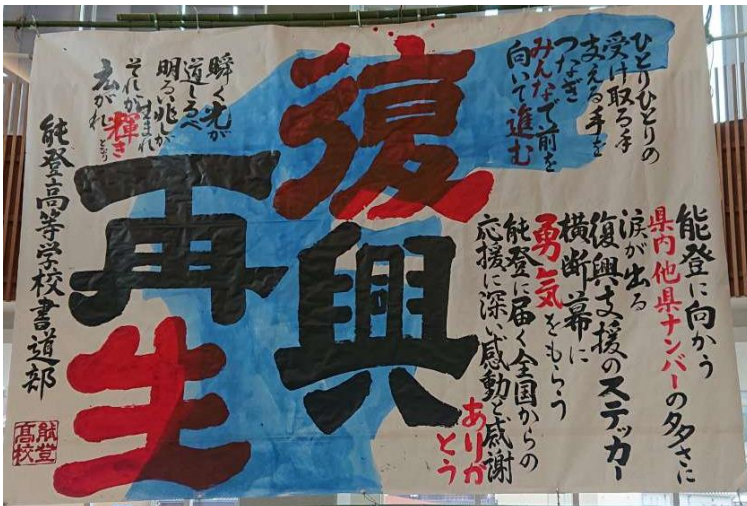 ひとりひとりの
受け取る手
支える手を
つなぎ
みんなで前を
向いて進む
能登に向かう
県内他県ナンバーの多さに
涙が出る
復興支援のステッカー
横断幕に
勇気をもらう
能登に届く全国からの
応援に深い感動と感謝
ありが
とう
復興
再生
瞬く光が
道しるべ
明るい兆しが生まれ
それが輝きとなり
広がれ
能登高等学校書道部
能登
高校